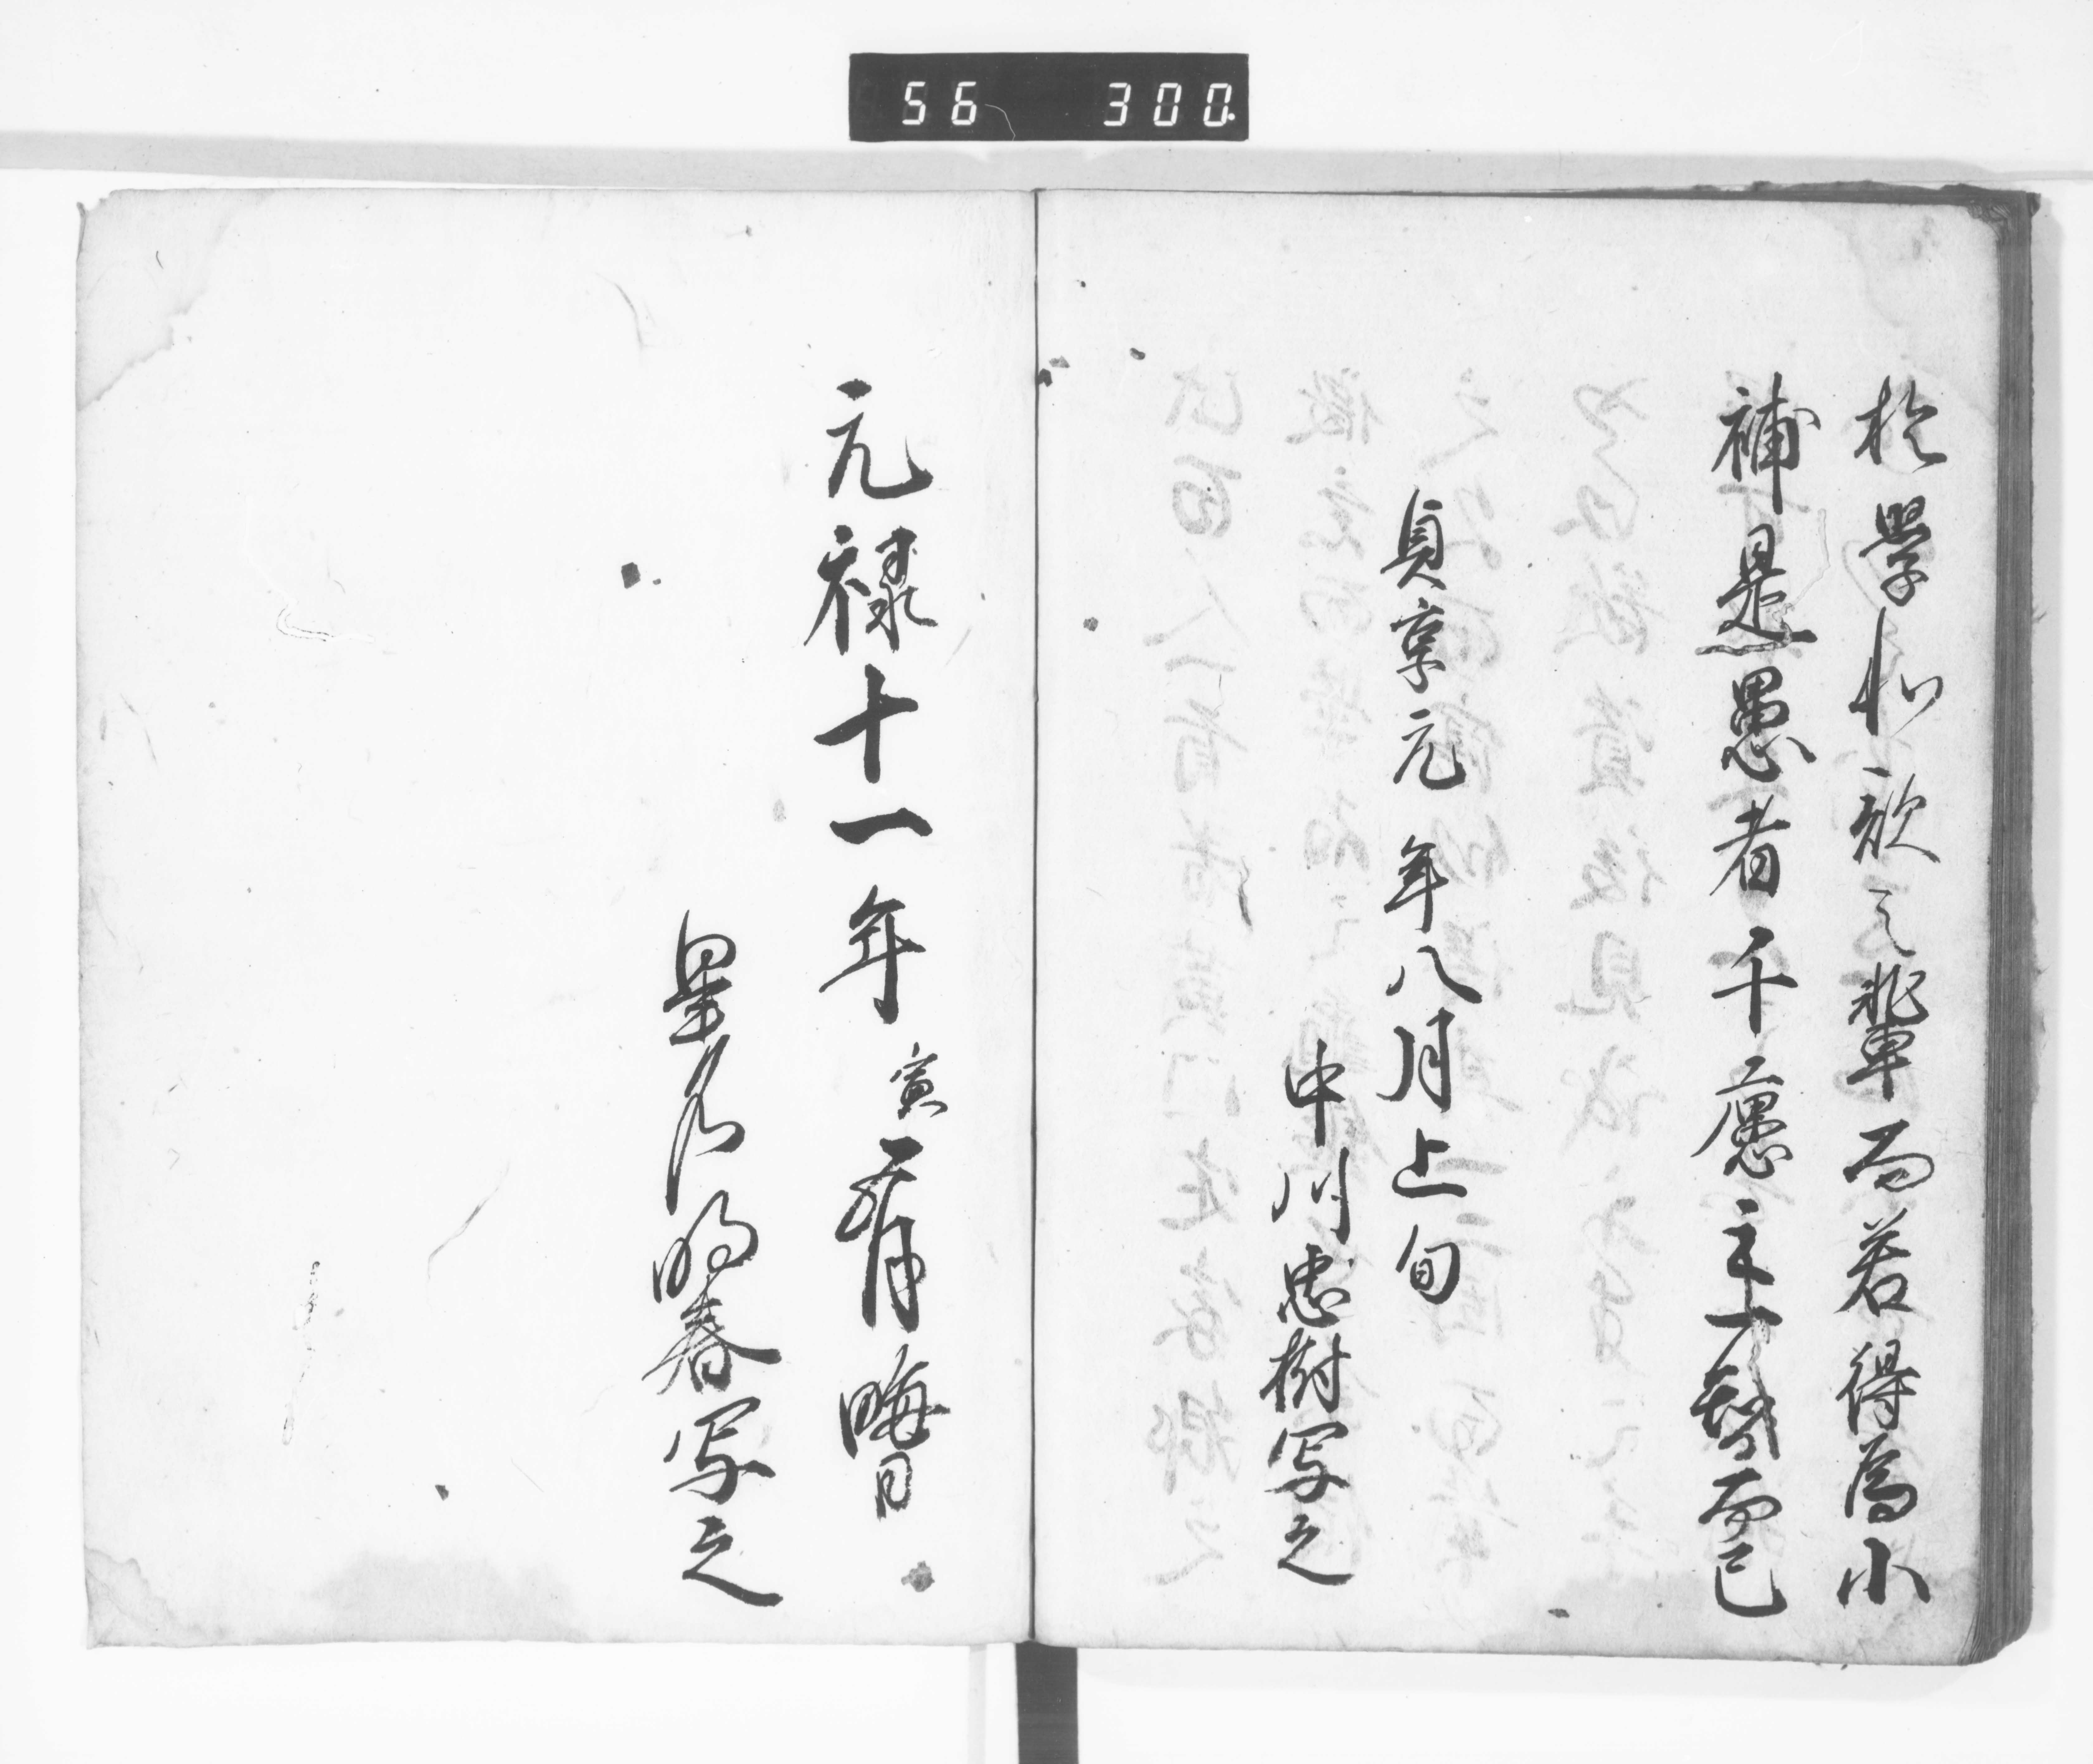 56 300
於學和歌之輩而若得為小
補是愚者千慮之一智而已
貞享元年八月上旬
中川忠樹写之
元禄十一年寅二月晦日
春写之